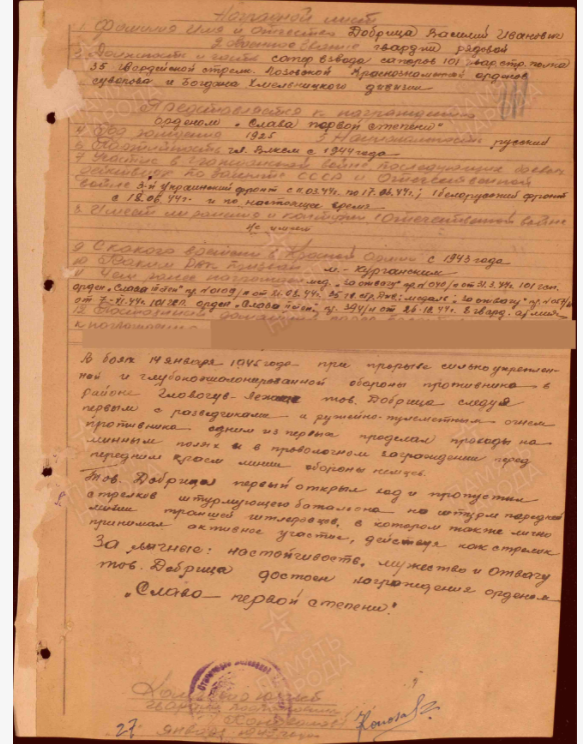 Наградной лист
1. Фамилия Имя и Отчество Добрица Василий Иванович
2. Военное звание гвардии рядовой
3. Должность и часть сапер взвода саперов 101 гвар. стр. полка
35 гвардейской стрелк. Лозовской Краснознаменной орденов
Суворова и Богдана Хмельницкого дивизии
Представляется к награждению
Орденом „Слава первой степени"
4. Год рождения 1925 5. Национальность русский
6. Партийность чл. ВЛКСМ с 1944 года
7. Участие в гражданской войне последующих боевых
действиях по защите СССР и Отечественной
войне 3-й Украинский фронт с по 17.06.44г.; 1 Белорусский фронт
с 18.06.44г. и по настоящее время
8. Имеет ли ранения и контузии в Отечественной войне
Не имеет
9. С какого времени в Красной армии с 1943 года
10. Каким РВК призван м-Курганским
11. Чем ранее награжден мед. „За отвагу" пр. от 101 гсп.
орден „Слава "
от орден „Слава " 8 гвард. армии
12. Постоянный домашний адрес
к награждению
В боях 14 января 1945 года при прорыве сильно укреплен-
ной и глубокоэшелонированной обороны противника в
районе тов. Добрица следуя
первым с разведчиками и ружейно-пулеметным огнем
противника одним из первых проделал проходы на
минным полях и в проволочном заграждении перед
передним краем линии обороны немцев.
Тов. Добрица первый открыл ход и пропустил
стрелков штурмующего батальона на штурм передней
линии траншей гитлеровцев, в котором также лично
принимал активное участие, действуя как стрелок
За личные: настойчивость, мужество и отвагу
тов. Добрица достоин награждения орденом
„Слава первой степени".
27 января
ПАМЯТЬ НАРОДА